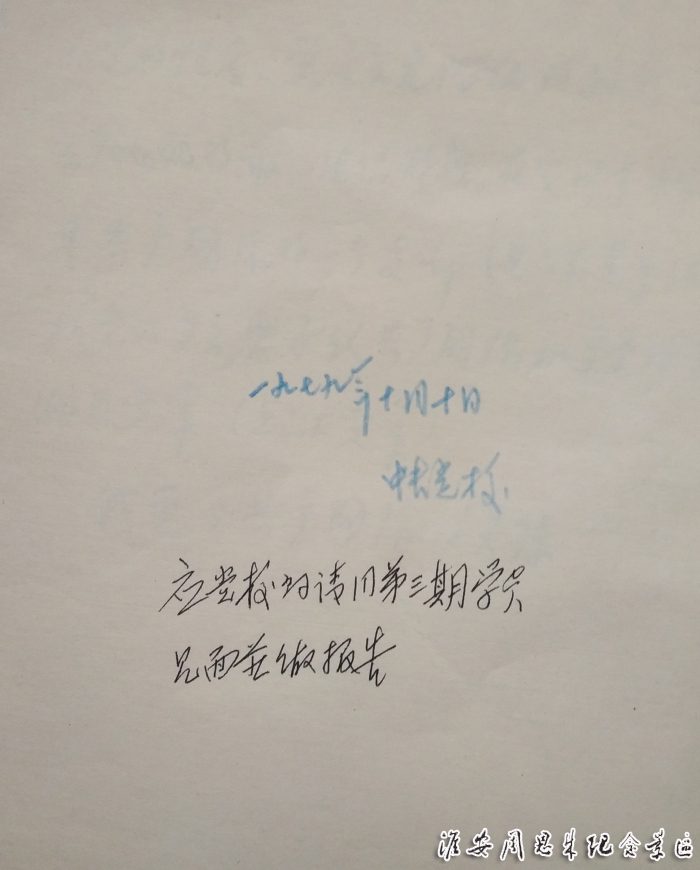 一九七九年十月十日
中央党校
应党校的请同第三期学员
见面并做报告
淮安周恩来纪念景区